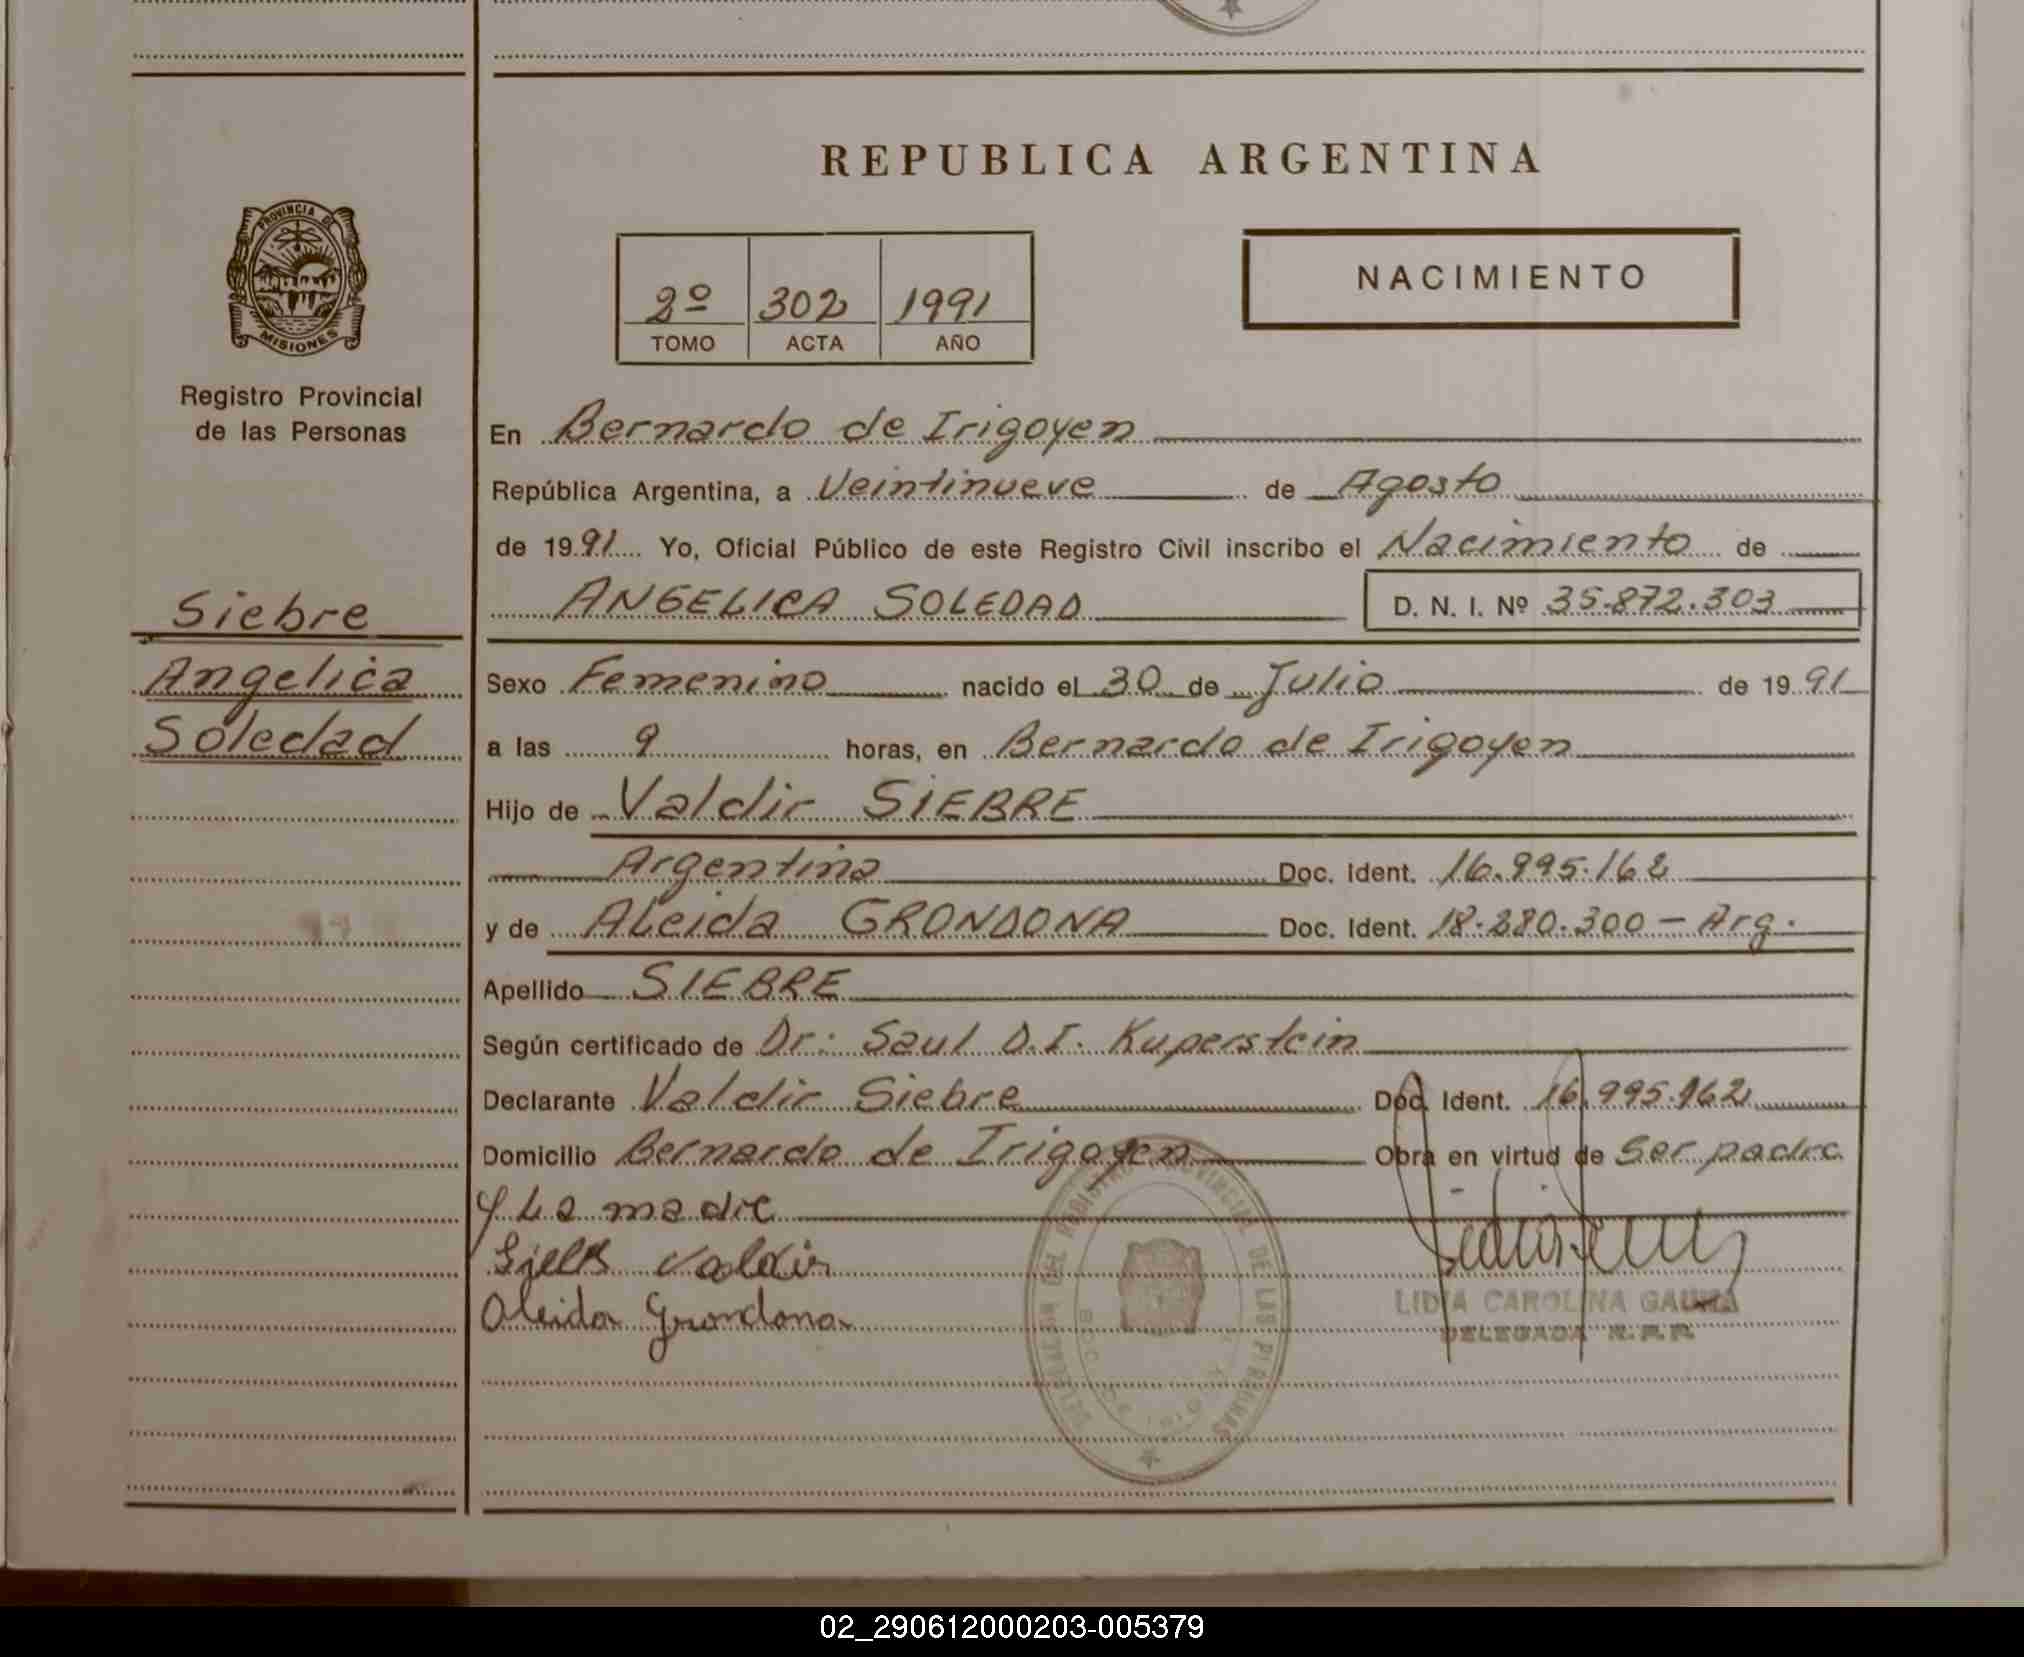 REPUBLICA ARGENTINA
PROVINCIA DE
MISIONES
Registro Provincial
de las Personas
2º 302 1991
TOMO ACTA AÑO
NACIMIENTO
En Bernardo de Irigoyen
República Argentina, a Veintinueve de Agosto
de 1991 Yo, Oficial Público de este Registro Civil inscribo el Nacimiento de
ANGELICA SOLEDAD D. N. I. Nº 35.872.303
Siebre
Angelica
Soledad
Sexo Femenino nacido el 30 de Julio de 1991
a las 9 horas, en Bernardo de Irigoyen
Hijo de Valdir SIEBRE
Argentina Doc. Ident. 16.995.162
y de ALeida GRONDONA Doc. Ident. 18.280.300 - Arg.
Apellido SIEBRE
Según certificado de Dr: Saul D.I. Kuperstein
Declarante Valdir Siebre Doc. Ident. 16.995.162
Domicilio Bernardo de Irigoyen Obra en virtud de Ser padre
y La madre
Valdir
Aleida Grondona
DEL REGISTRO PROVINCIAL DE LAS PERSONAS
LIDIA CAROLINA GAUNA
DELEGADA R.P.P.
02_290612000203-005379